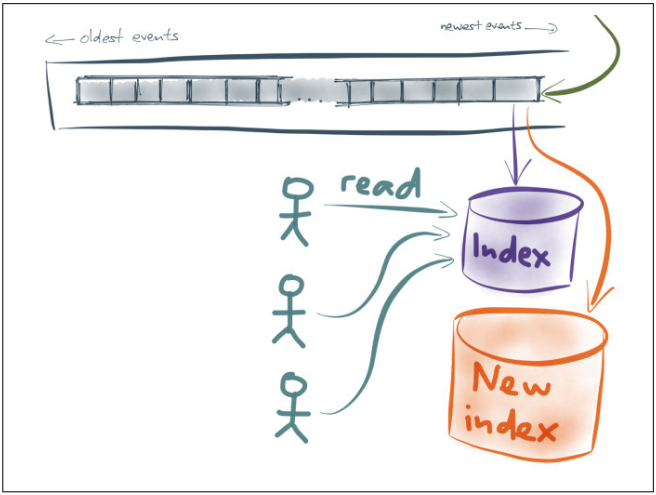 ← oldest events
newest events →
read
Index
New
index